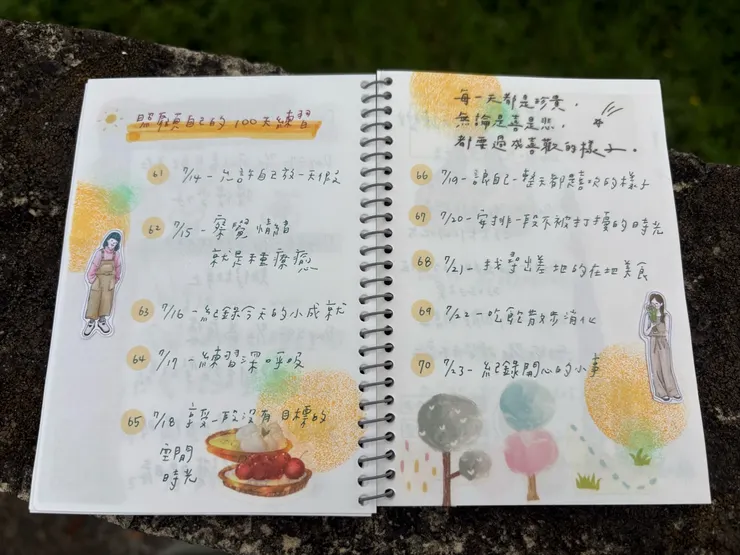 照顧自己的100天練習
61 7/14-允許自己放一天假
62 7/15-察覺情緒
就是種療癒
63 7/16-紀錄今天的小成就
64 7/17-練習深呼吸
65 7/18 享受一段沒有目標的
空閒
時光
每一天都是珍貴,
無論是喜是悲,
都要過成喜歡的樣子.
66 7/19-讓自己一整天都是喜歡的樣子
67 7/20-安排一段不被打擾的時光
68 7/21-找尋出差地的在地美食
69 7/22-吃飽散步消化
70 7/23-紀錄開心的小事